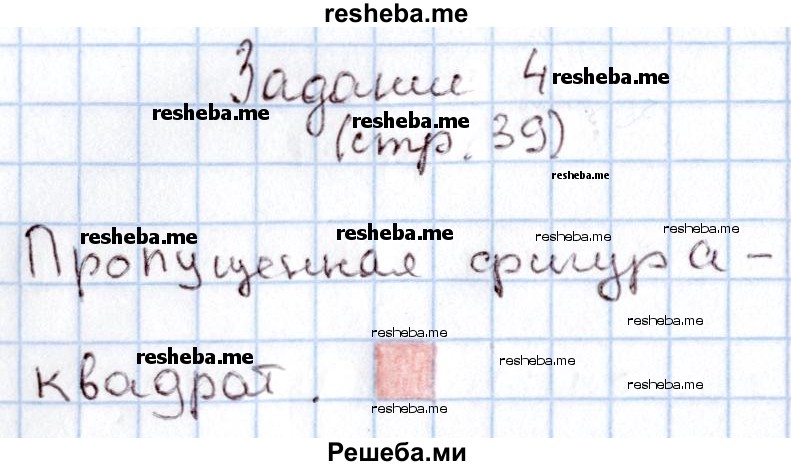 resheba.me
Задание 4 resheba.me
resheba.me (стр. 39) resheba.me
resheba.me
resheba.me resheba.me resheba.me resheba.me
Пропущенная фигура -
resheba.me
resheba.me
квадрат. resheba.me resheba.me resheba.me
resheba.me
Решеба.ми